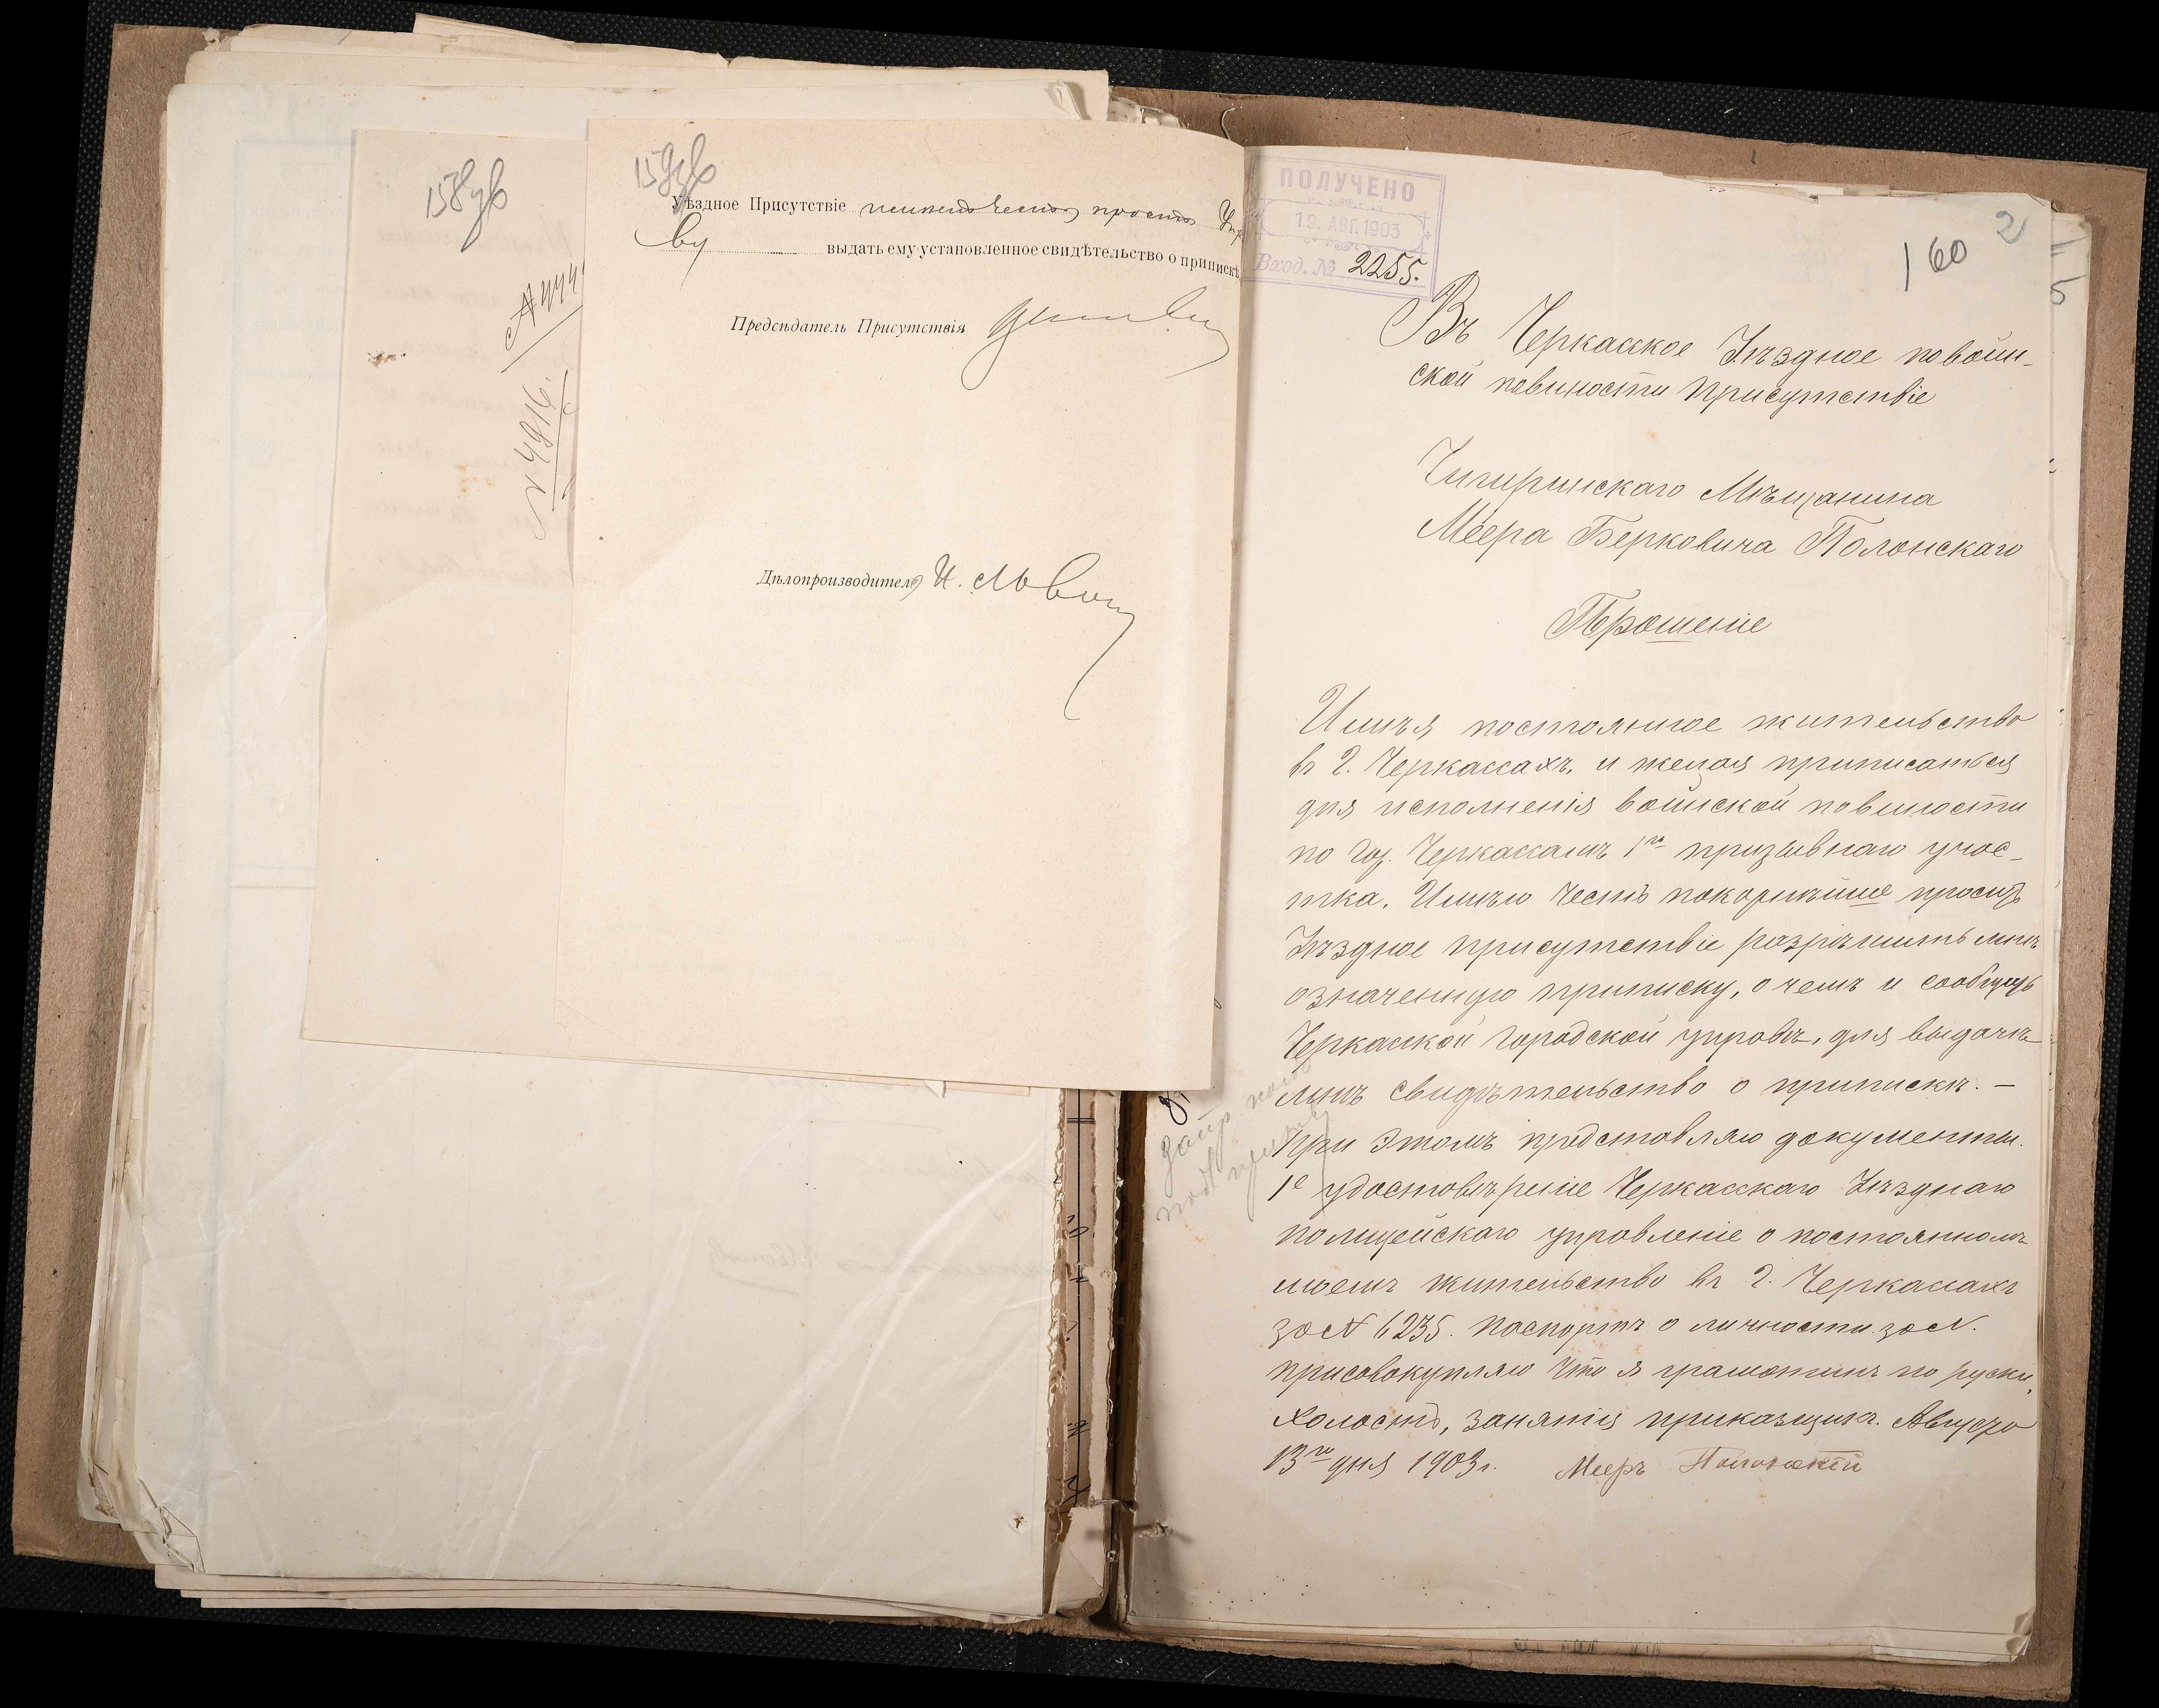 158
159
Уѣздное Присутствіе имѣетъ честь просить Упра
ву выдать ему установленное свидѣтельство о припискѣ
Предсѣдатель Присутствія
Дѣлопроизводитель И. Львов
№ 4916.
ПОЛУЧЕНО
19. АВГ. 1903
Вход. № 2255.
160
2
Въ Черкасское Уѣздное по воин-
ской повиности присутствіе
Чигиринскаго Мѣщанина
Меера Берковича Полонскаго
Прошеніе
Имѣя постояное жительство
въ г. Черкассахъ, и желая приписаться
для исполненія воинской повиности
по гор. Черкассамъ 1го призывнаго учас-
тка. Имѣю честь покорнѣйше просить
Уѣздное присутствіе разрѣшить мнѣ
означенную приписку, о чемъ и сообщить
Черкаской городской управѣ, для выдачѣ
мнѣ свидѣтельство о припискѣ. –
При этомъ представляю документы.
1е удостовѣреніе Черкасскаго Уѣзднаго
полицейскаго управленіе о постоянномъ
моемъ жительство въ г. Черкасахъ
за № 6235. Паспортъ о личности за №.
присовокупляю что я грамотенъ по руски,
холостъ, занятія приказщикъ. Августа
13го дня 1903 г. Мееръ Полонскій